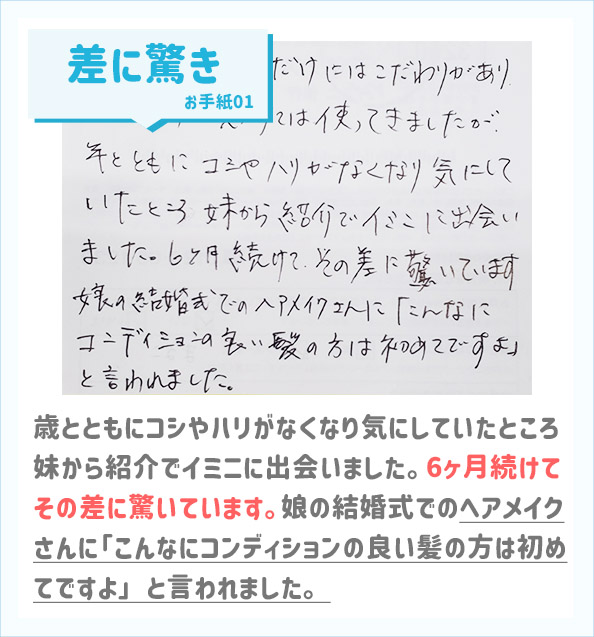 差に驚き
お手紙01
だけにはこだわりがあり
ては使ってきましたが、
年とともにコシやハリがなくなり気にして
いたところ妹から紹介でイミニに出会い
ました。6ヶ月続けて、その差に驚いています
娘の結婚式でのヘアメイクさんに「こんなに
コンディションの良い髪の方は初めてですよ」
と言われました。
歳とともにコシやハリがなくなり気にしていたところ
妹から紹介でイミニに出会いました。6ヶ月続けて
その差に驚いています。娘の結婚式でのヘアメイク
さんに「こんなにコンディションの良い髪の方は初め
てですよ」と言われました。